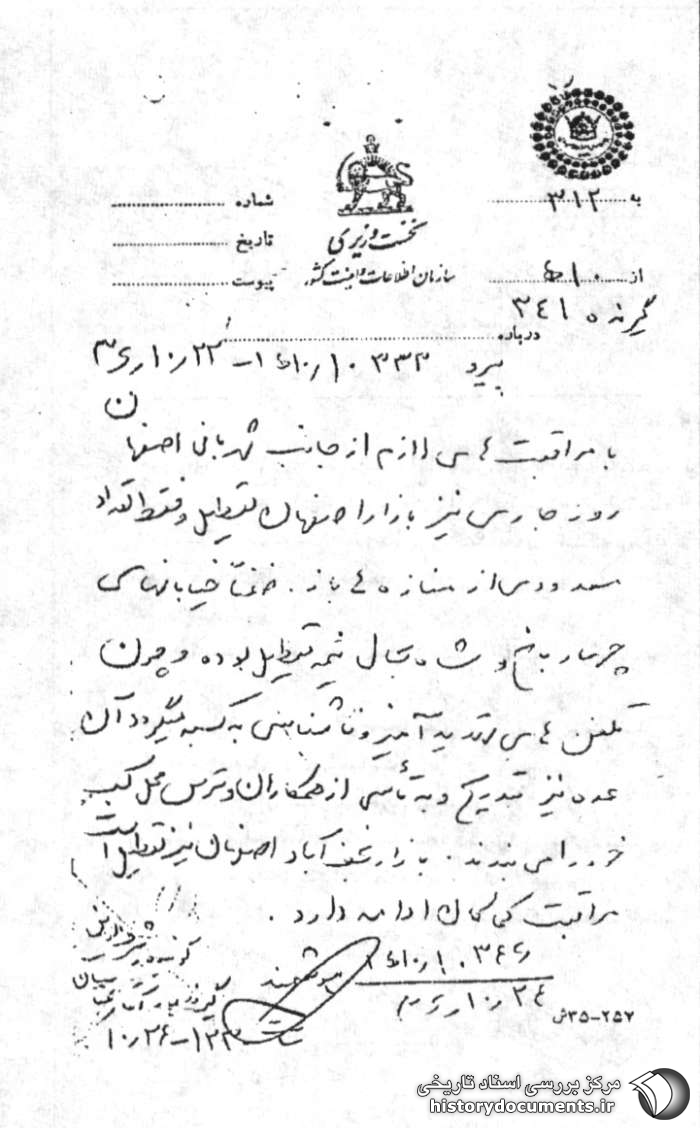 شماره
تاریخ
پیوست
نخست وزیری
سازمان اطلاعات و امنیت کشور
به ۳۱۲
از ۱۰ ه‍
گیرنده ۳۴۱
درباره
پیرو
با مراقبت های لازم از جانب شهربانی اصفهان
روز جاری نیز بازار اصفهان تعطیل و فقط تعداد
معدودی از مغازه ها باز . ضمناً خیابانهای
چهارباغ و شاه بحال نیمه تعطیل بوده و چون
تلفن های تهدید آمیز و ناشناسی به کسبه میگردد آن
عده نیز بتدریج و به تأسی از همکاران و ترس محل کسب
خود را می بندند . بازار نجف آباد اصفهان نیز تعطیل است
مراقبت کماکان ادامه دارد .
هوشمند
۳۵-۲۵۲ش
مرکز بررسی اسناد تاریخی
historydocuments.ir